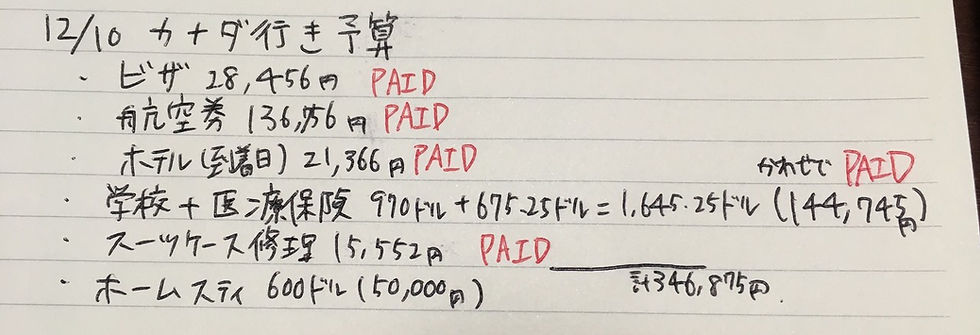 12/10 カナダ行き予算
・ ビザ 28,456円 PAID
・ 航空券 136,756円 PAID
・ ホテル(到着日) 21,366円 PAID
かわせで PAID
・ 学校+医療保険 970ドル+675.25ドル=1,645.25ドル (144,745円)
・ スーツケース修理 15,552円 PAID
・ ホームスティ 600ドル(50,000円) 計346,875円.